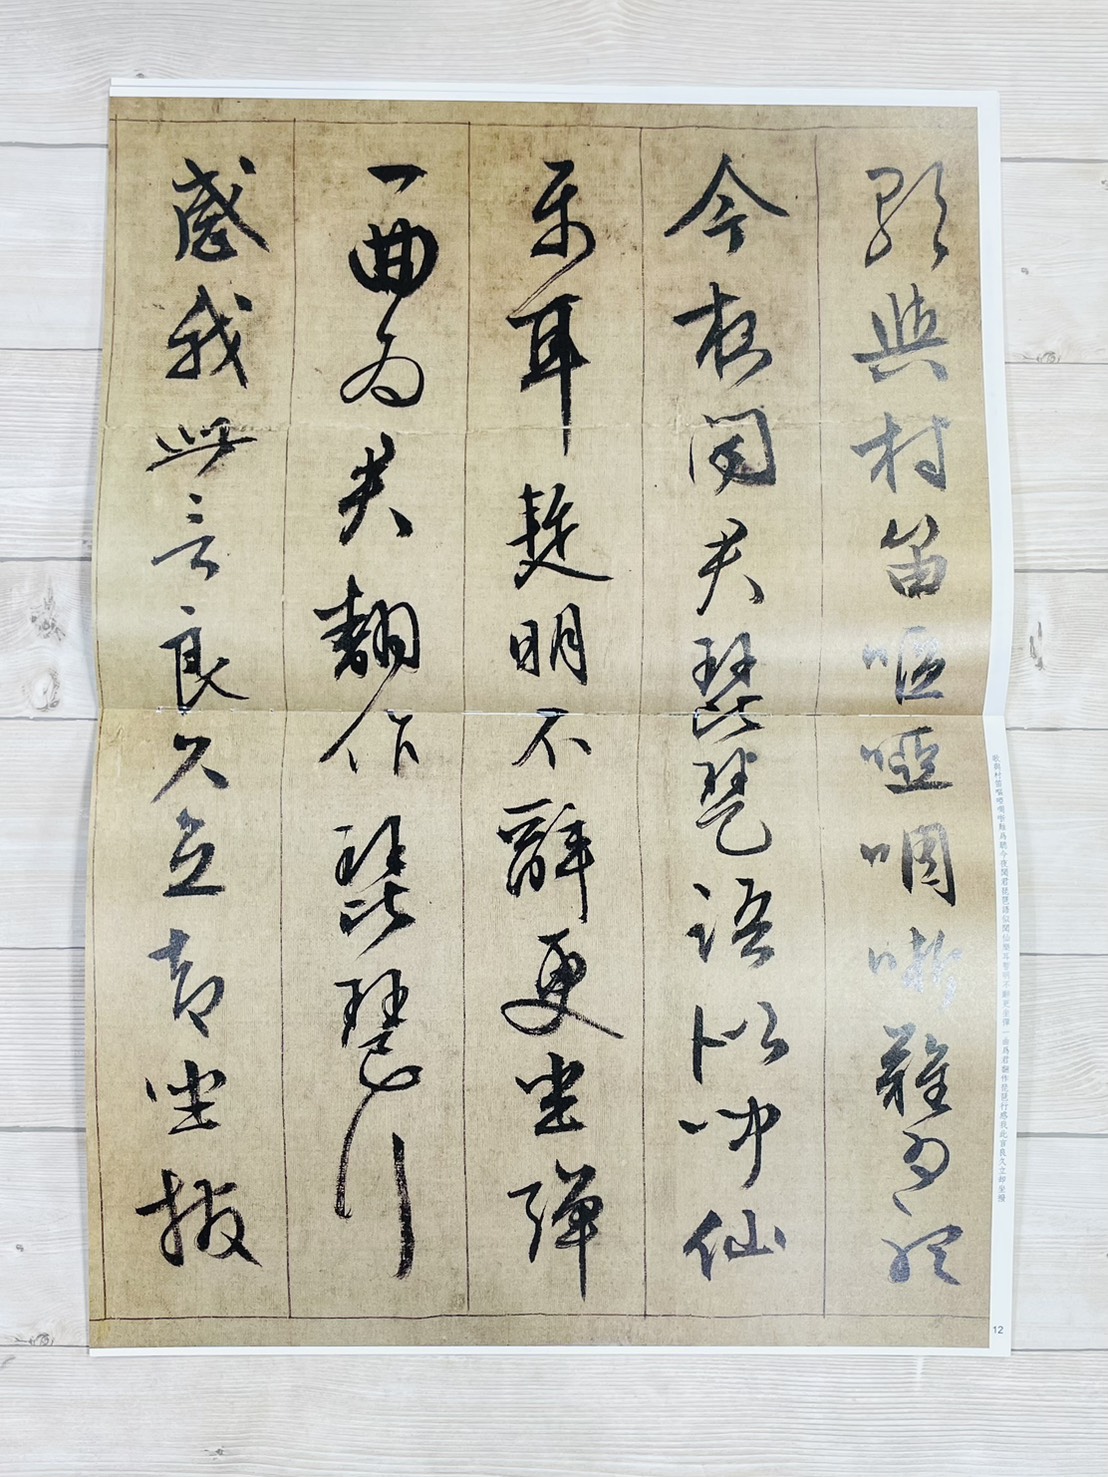 歌與村笛嘔啞啁哳難為聽
今夜聞君琵琶語似听仙
樂耳暫明不辭更坐彈
一曲為君翻作琵琶行
感我此言良久立却坐撥
歌與村笛嘔啞啁哳難為聽今夜聞君琵琶語似聞仙樂耳暫明不辭更坐彈一曲為君翻作琵琶行感我此言良久立却坐撥
12